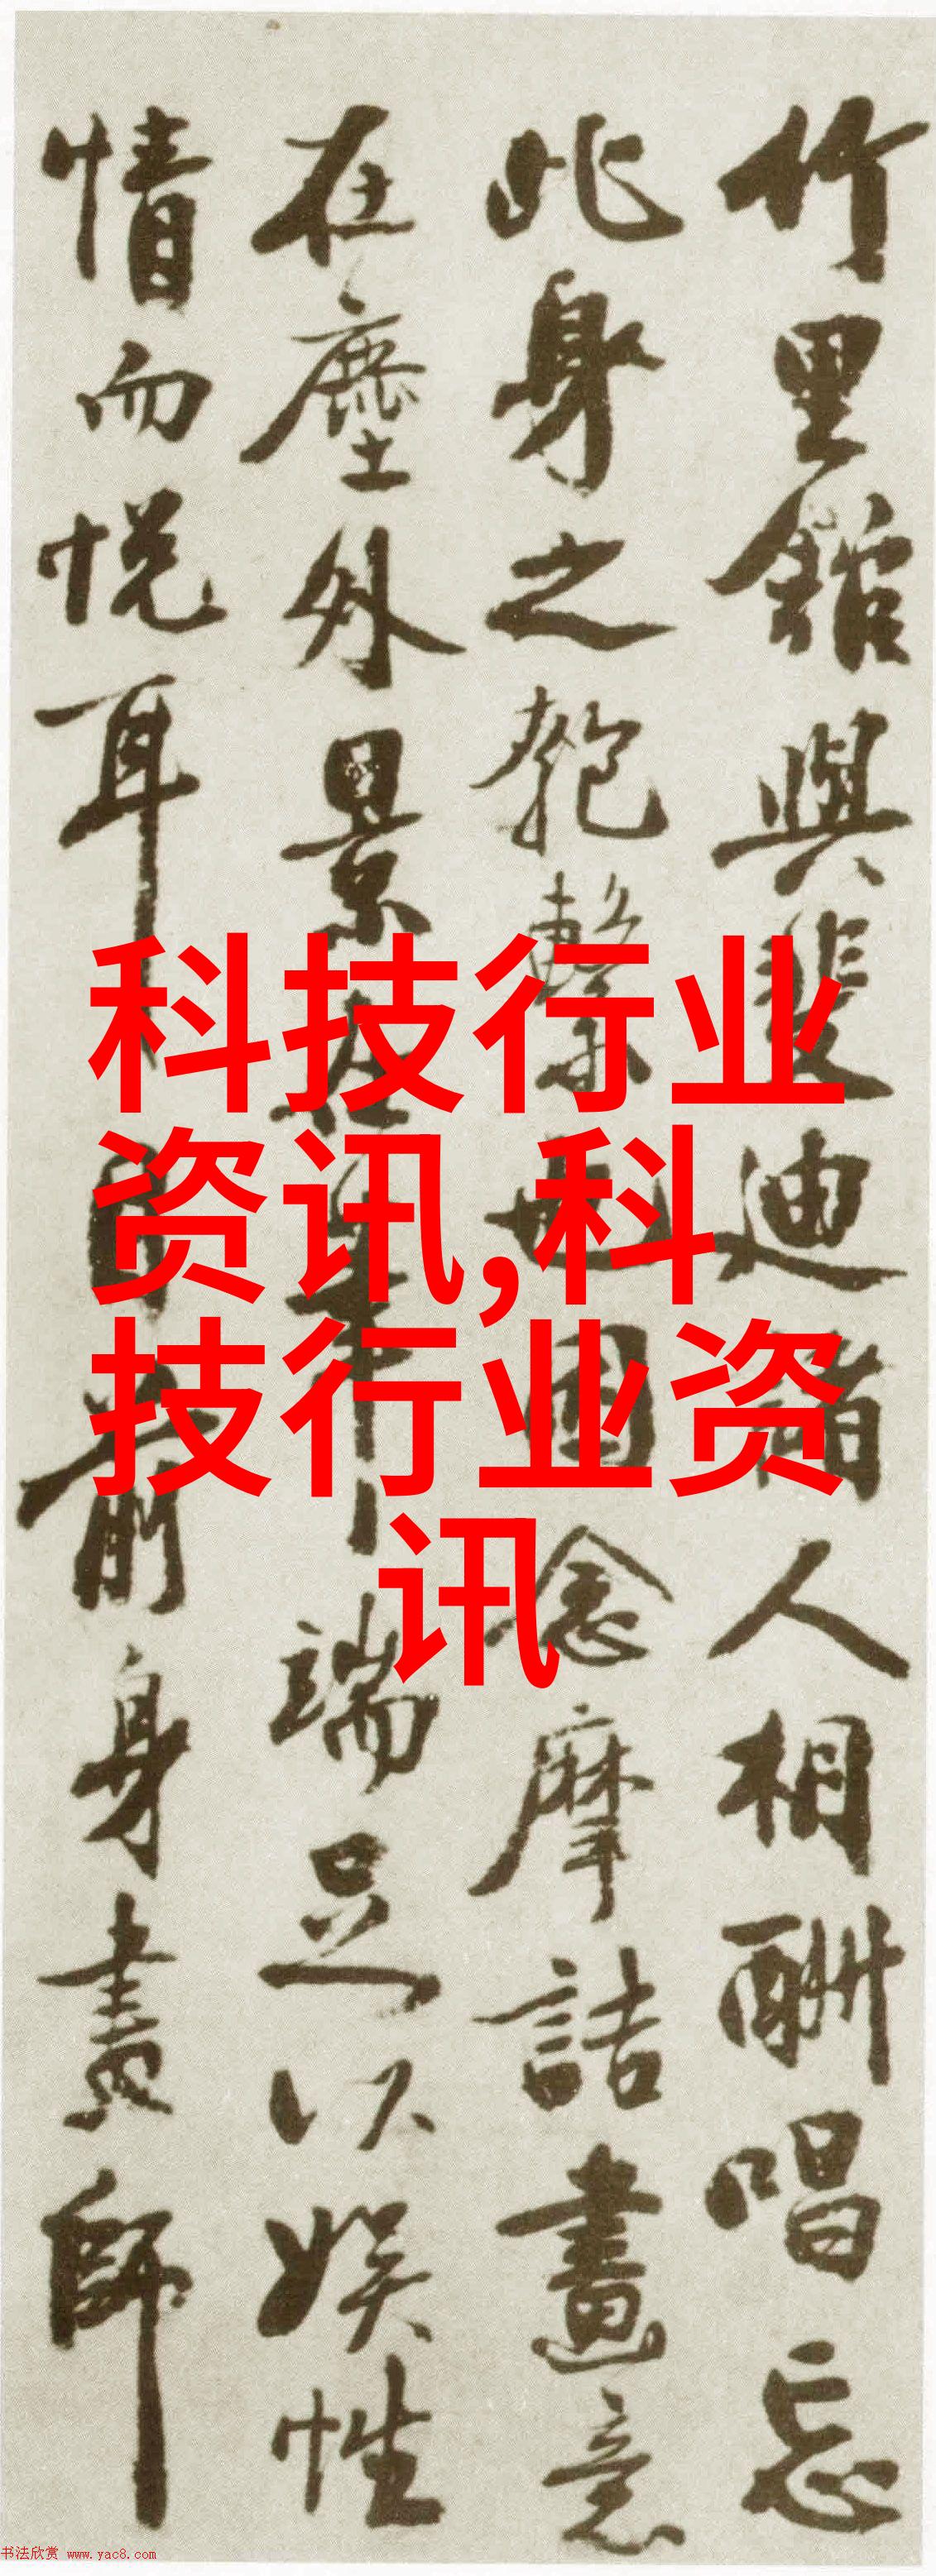 竹里館與裴迪諸人相酬唱忘
此身之匏繫也因念摩詰畫意
在塵外景在筆端足以娛性
情而悅耳目前身畫師
科技行业
资讯,科
技行业资
讯
书法欣赏 www.yac8.com